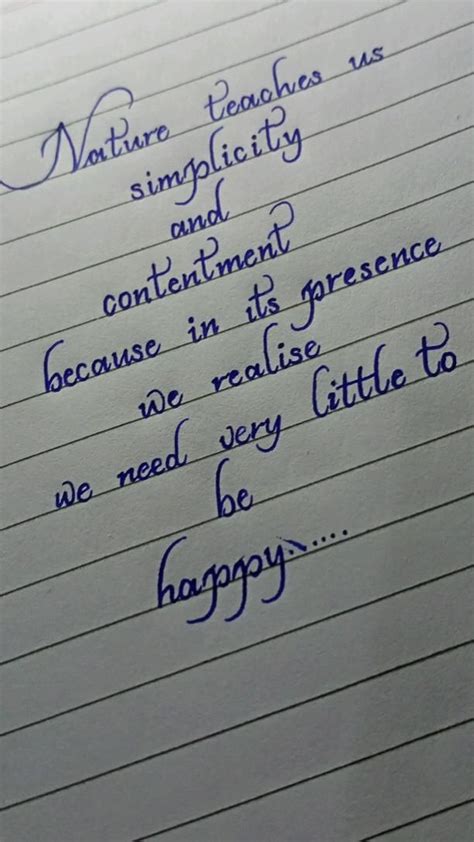 Nature teaches us
simplicity
and
contentment
because in its presence
we realise
we need very little to
be
happy......